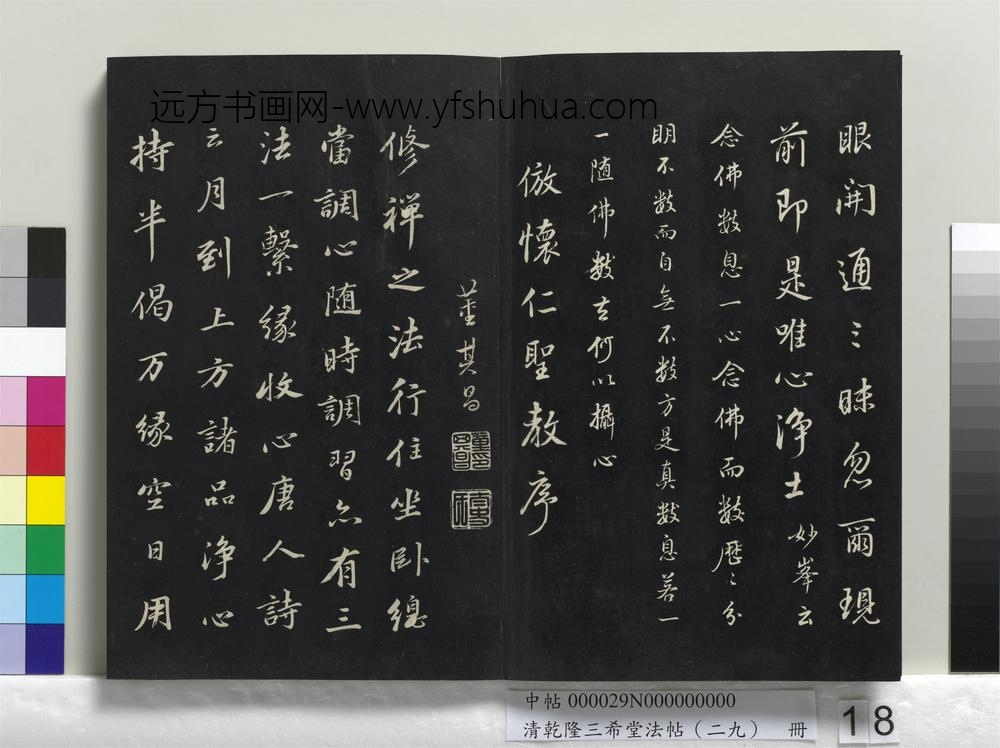 远方书画网-www.yfshuhua.com
眼開通々昧忽爾現
前即是唯心淨土妙峯云
念佛數息一心念佛而數歷々分
明不數而自無不數方是真數息若一
一随佛數去何以攝心
倣懷仁聖教序
董其昌
修禅之法行住坐卧總
當調心随時調習亦有三
法一繫緣收心唐人詩
云月到上方諸品净心
持半偈万緣空日用
中帖 000029N000000000
清乾隆三希堂法帖（二九） 冊
18